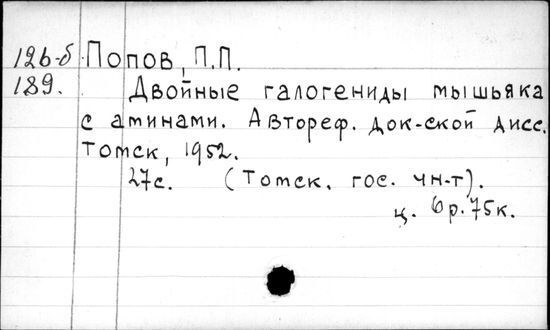 126-б Попов, П.П.
189. Двойные галогениды мышьяка
с аминами. Автореф. док-ской дисс.
Томск, 1952.
27с. (Томск. гос. ун-т).
ц. 6р.75к.